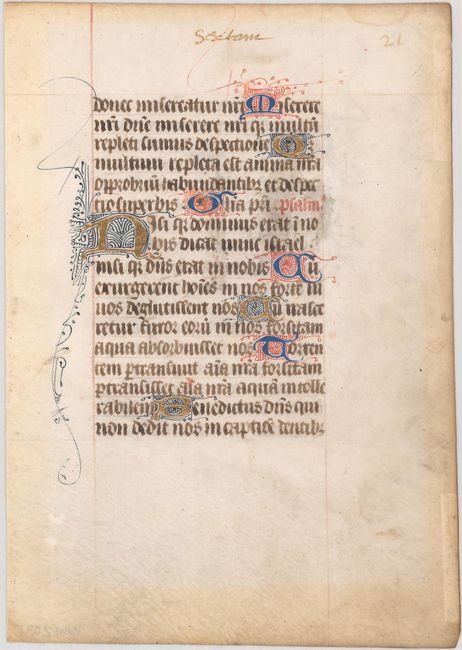 21
donec misereatur nr̄i Miserere
nr̄i dn̄e miserere nr̄i q̄ multū
repleti sumus despectione Q̄
multum repleta est anima nr̄a
opprobriū habundantibꝫ et despe
ctio superbis Gl̄ia pr̄i psalm̄
Nisi q̄ dominus erat ī no
bis dicat nunc israel
nisi q̄ dn̄s erat in nobis Cū
exurgerent hoīes in nos forte ui
uos deglutissent nos Cū irasce
retur furor eorū in nos forsitam
aqua absorbuisset nos Torren
tem pertransiuit aīa nr̄a forsitam
ꝑtransisset aīa nr̄a aquam intolle
rabilem Benedictus dn̄s qui
non dedit nos in captiōe dentibꝫ